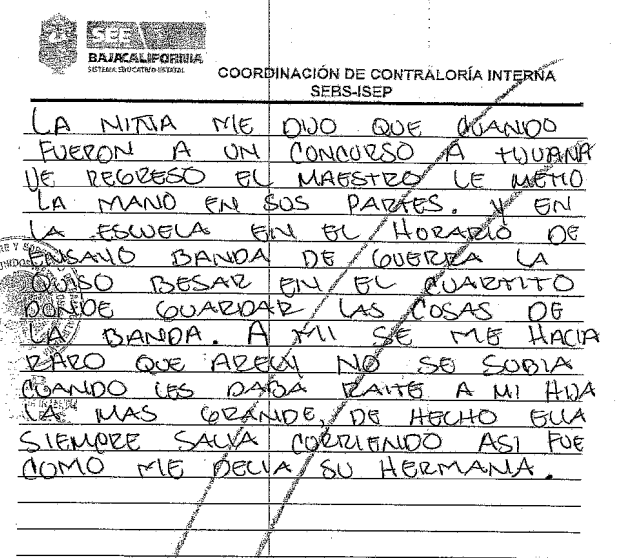 SEE
BAJACALIFORNIA
SISTEMA EDUCATIVO ESTATAL
COORDINACIÓN DE CONTRALORÍA INTERNA
SEBS-ISEP
LA NIÑA ME DIJO QUE CUANDO
FUERON A UN CONCURSO A TIJUANA
DE REGRESO EL MAESTRO LE METIO
LA MANO EN SUS PARTES. Y EN
LA ESCUELA EN EL HORARIO DE
ENSAYO BANDA DE GUERRA LA
QUISO BESAR EN EL CUARTITO
DONDE GUARDAR LAS COSAS DE
LA BANDA. A MI SE ME HACIA
RARO QUE NO SE SUBIA
CUANDO LES DABA RAITE A MI HIJA
LA MAS GRANDE, DE HECHO ELLA
SIEMPRE SALIA CORRIENDO ASI FUE
COMO ME DECIA SU HERMANA.